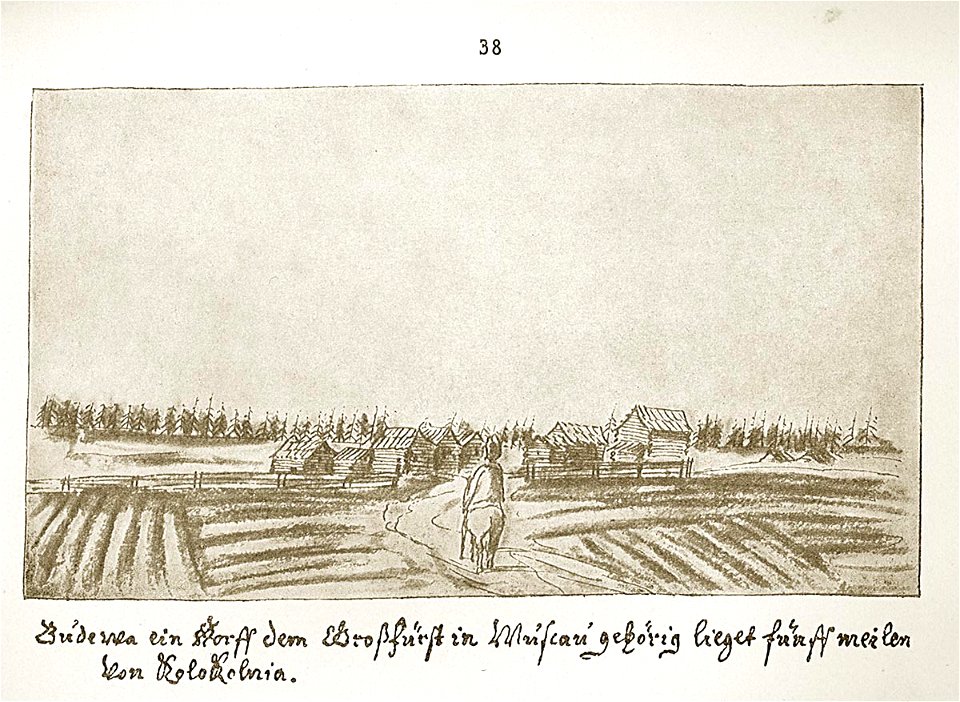 38
Budewa ein Dorff dem Großfürst in Muscau gehörig lieget fünff meilen
von Kolokolnia.